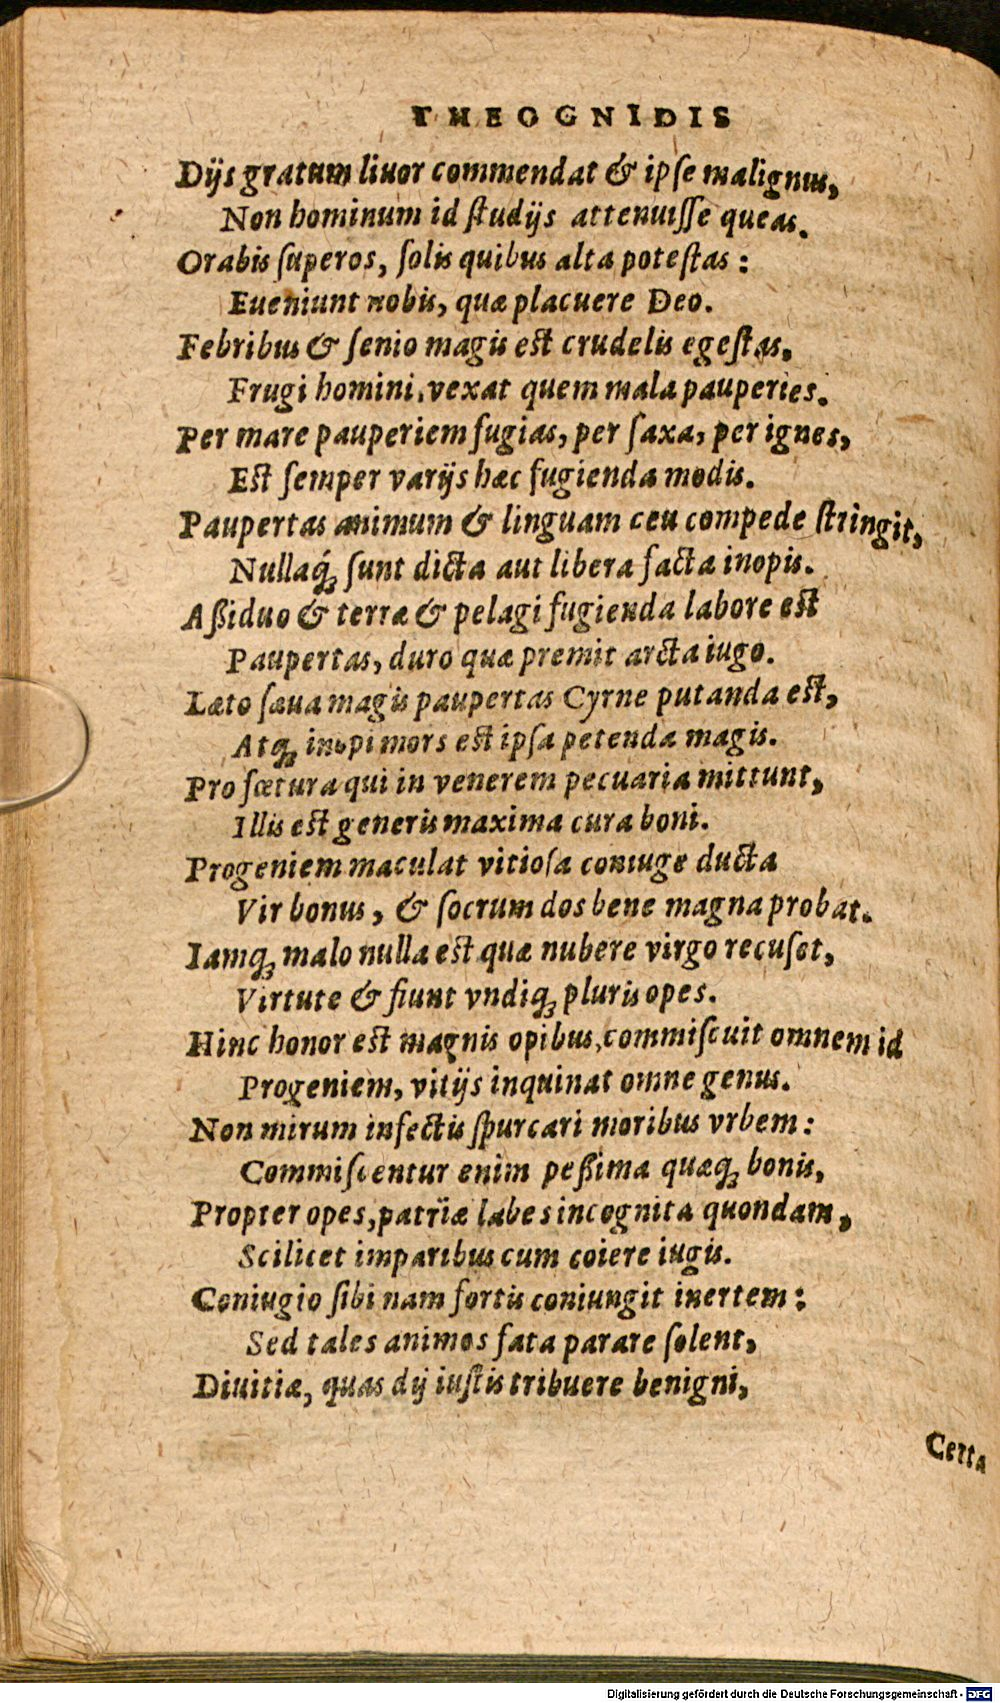 THEOGNIDIS
Dijs gratum liuor commendat & ipse malignus,
Non hominum id studijs attenuisse queas.
Orabis superos, solis quibus alta potestas:
Eueniunt nobis, quæ placuere Deo.
Febribus & senio magis est crudelis egestas,
Frugi homini, vexat quem mala pauperies.
Per mare pauperiem fugias, per saxa, per ignes,
Est semper varijs hæc fugienda modis.
Paupertas animum & linguam ceu compede stringit,
Nullaq́; sunt dicta aut libera facta inopis.
Aßiduo & terræ & pelagi fugienda labore est
Paupertas, duro quæ premit arcta iugo.
Læto sæua magis paupertas Cyrne putanda est,
Atq; inopi mors est ipsa petenda magis.
Pro fœtura qui in venerem pecuaria mittunt,
Illis est generis maxima cura boni.
Progeniem maculat vitiosa coniuge ducta
Vir bonus, & socrum dos bene magna probat.
Iamq; malo nulla est quæ nubere virgo recuset,
Virtute & fiunt vndiq; pluris opes.
Hinc honor est magnis opibus, commiscuit omnem id
Progeniem, vitijs inquinat omne genus.
Non mirum infectis spurcari moribus vrbem:
Commiscentur enim peßima quæq; bonis,
Propter opes, patrïæ labes incognita quondam,
Scilicet imparibus cum coiere iugis.
Coniugio sibi nam fortis coniungit inertem:
Sed tales animos fata parare solent,
Diuitiæ, quas dij iustis tribuere benigni,
Certa
Digitalisierung gefördert durch die Deutsche Forschungsgemeinschaft - DFG